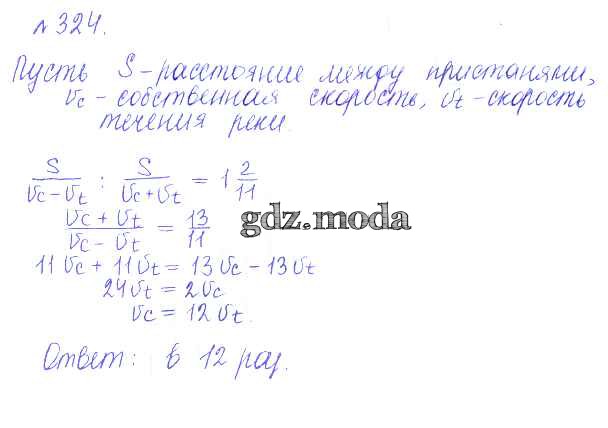 № 324.
Пусть S - расстояние между пристанями,
Vc - собственная скорость, Vt - скорость
течения реки.
S/(Vc - Vt) : S/(Vc + Vt) = 1 2/11
(Vc + Vt)/(Vc - Vt) = 13/11
gdz.moda
11Vc + 11Vt = 13Vc - 13Vt
24Vt = 2Vc
Vc = 12Vt.
Ответ: в 12 раз.